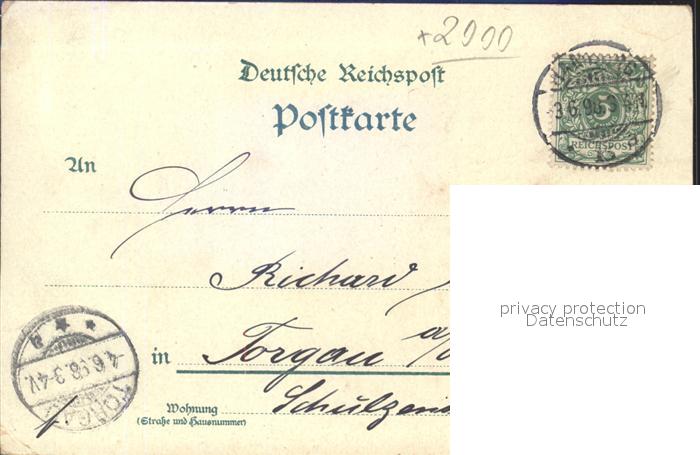 +2900
Deutsche Reichspost
Postkarte
5
REICHSPOST
3.6.98
An
Herrn
Richard
privacy protection
Datenschutz
4.6.98.3-4V.
TORGAU
in Torgau a/
Wohnung
(Straße und Hausnummer)